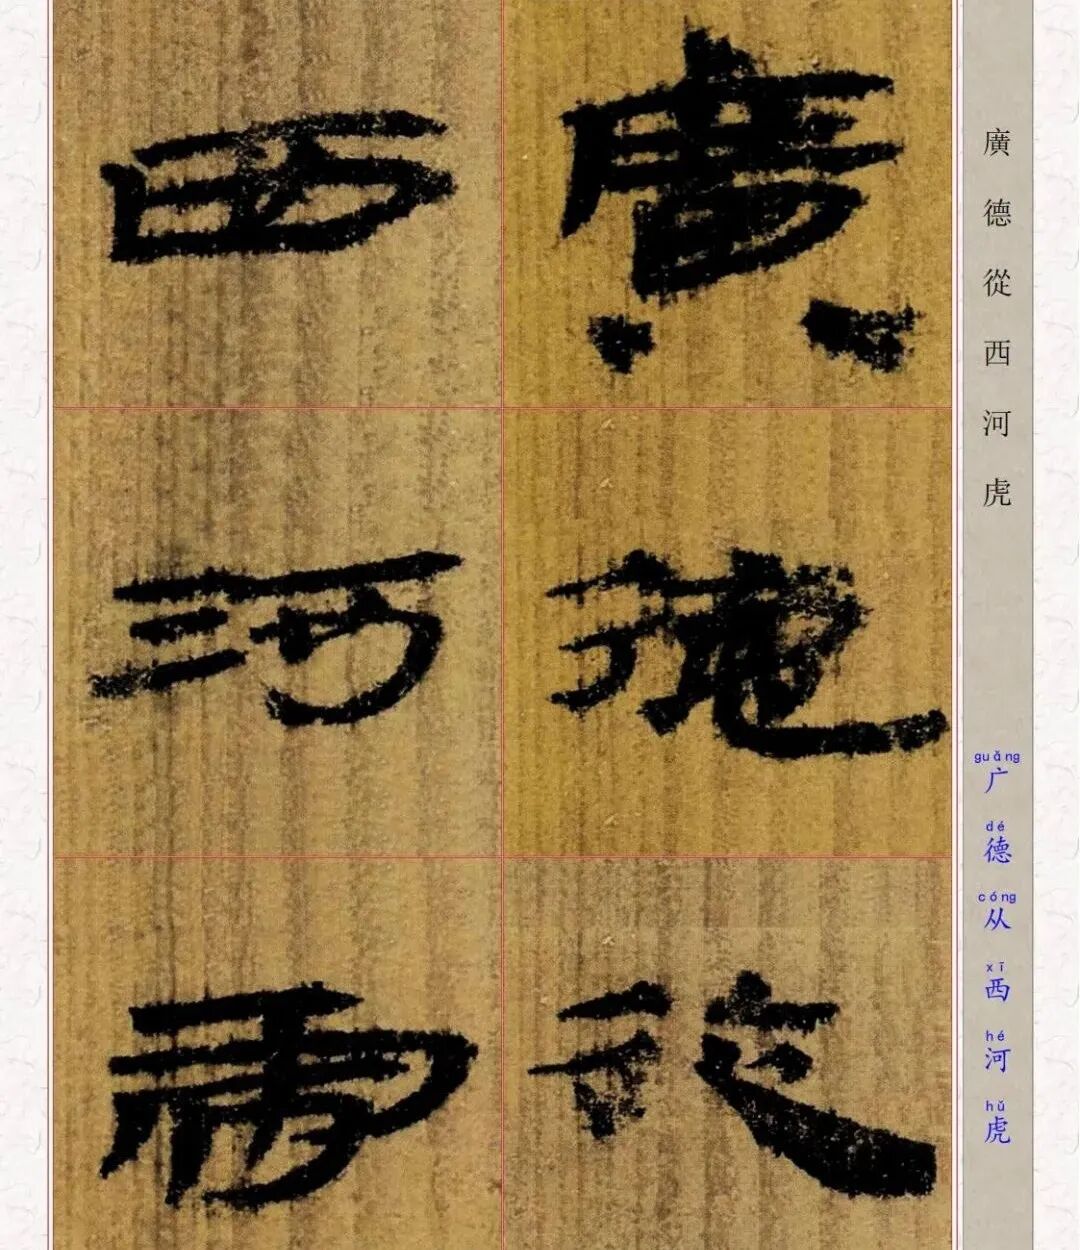 廣德從西河虎
guǎng dé cóng xī hé hǔ
广德从西河虎
廣德從
西河虎